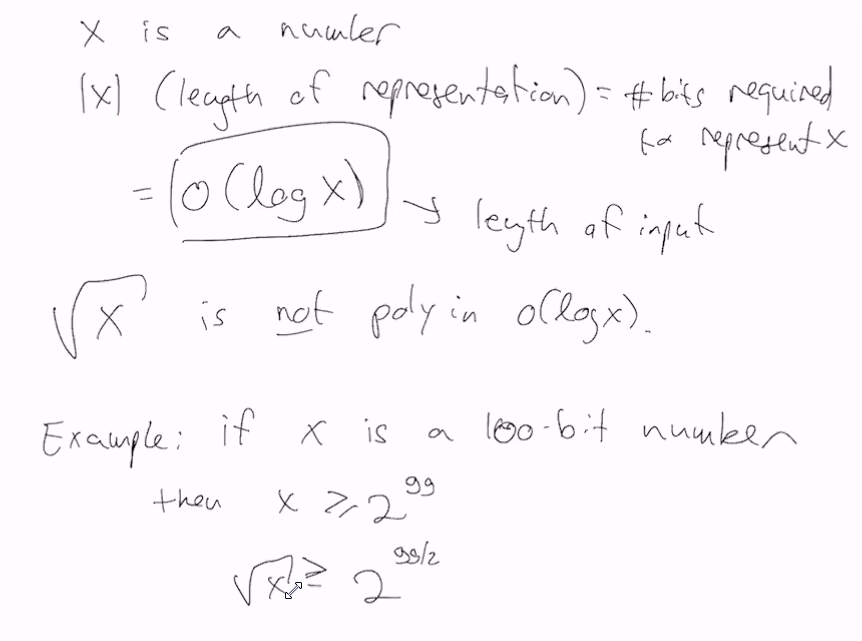 x is a number
|x| (length of representation) = # bits required
to represent x
= O(log x) → length of input
√x is not poly in O(log x).
Example: if x is a 100-bit number
then x ≥ 2^99
√x ≥ 2^99/2